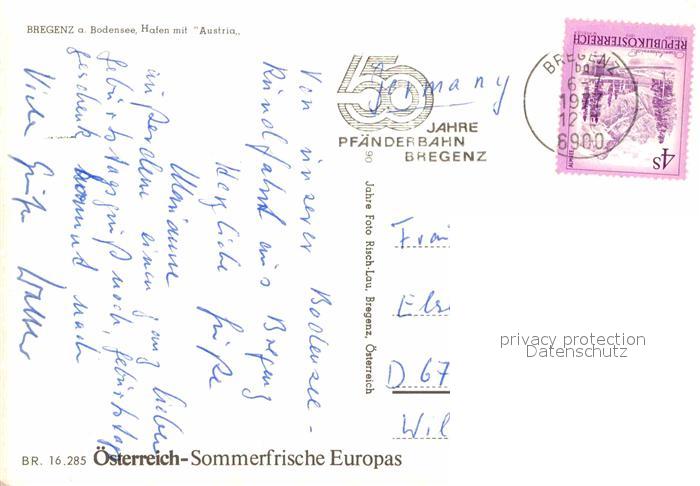 BREGENZ a. Bodensee, Hafen mit "Austria„
Von unserer Bodensee-
Rundfahrt aus Bregenz
Herzliche Grüße
Marianne
außerdem einen ganz lieben
Geburtstagsgruß noch, Geburtstags
geschenk kommt nach
Viele Grüße Walter
50
JAHRE
PFÄNDERBAHN
BREGENZ
Germany
BREGENZ
6900
REPUBLIK ÖSTERREICH
4S
90 Jahre Foto Risch-Lau, Bregenz, Österreich
Frau
Els
D 67
Wil
privacy protection
Datenschutz
BR. 16.285 Österreich-Sommerfrische Europas